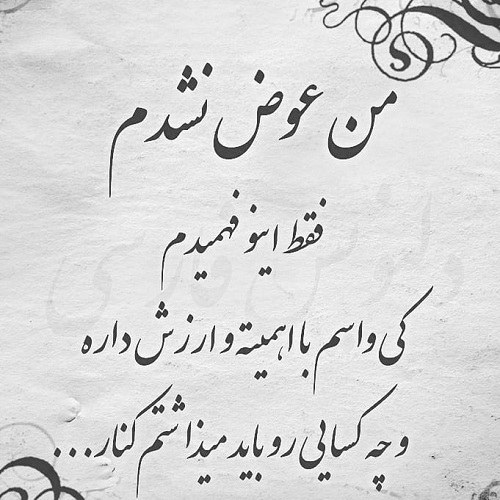 من عوض نشدم
فقط اینو فهمیدم
کی واسم بااهمیته و ارزش داره
و چه کسایی رو باید میذاشتم کنار...